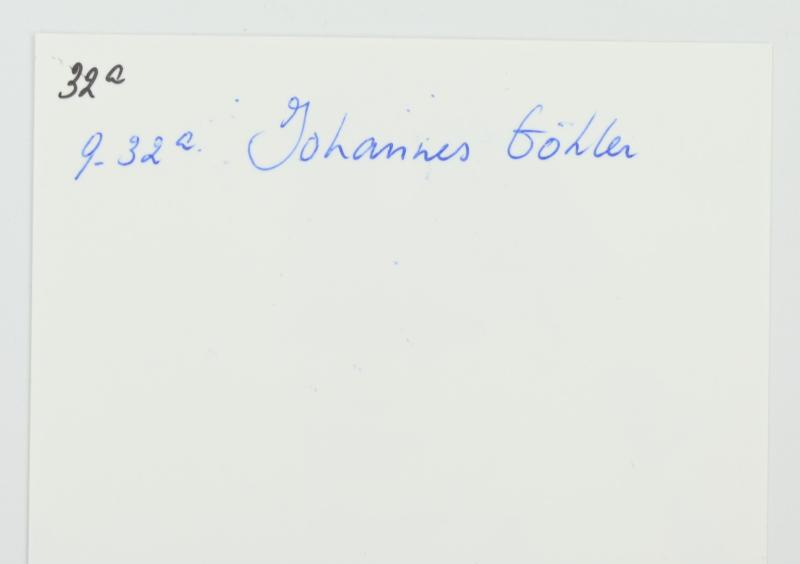 32a
9-32a. Johannes Göhler